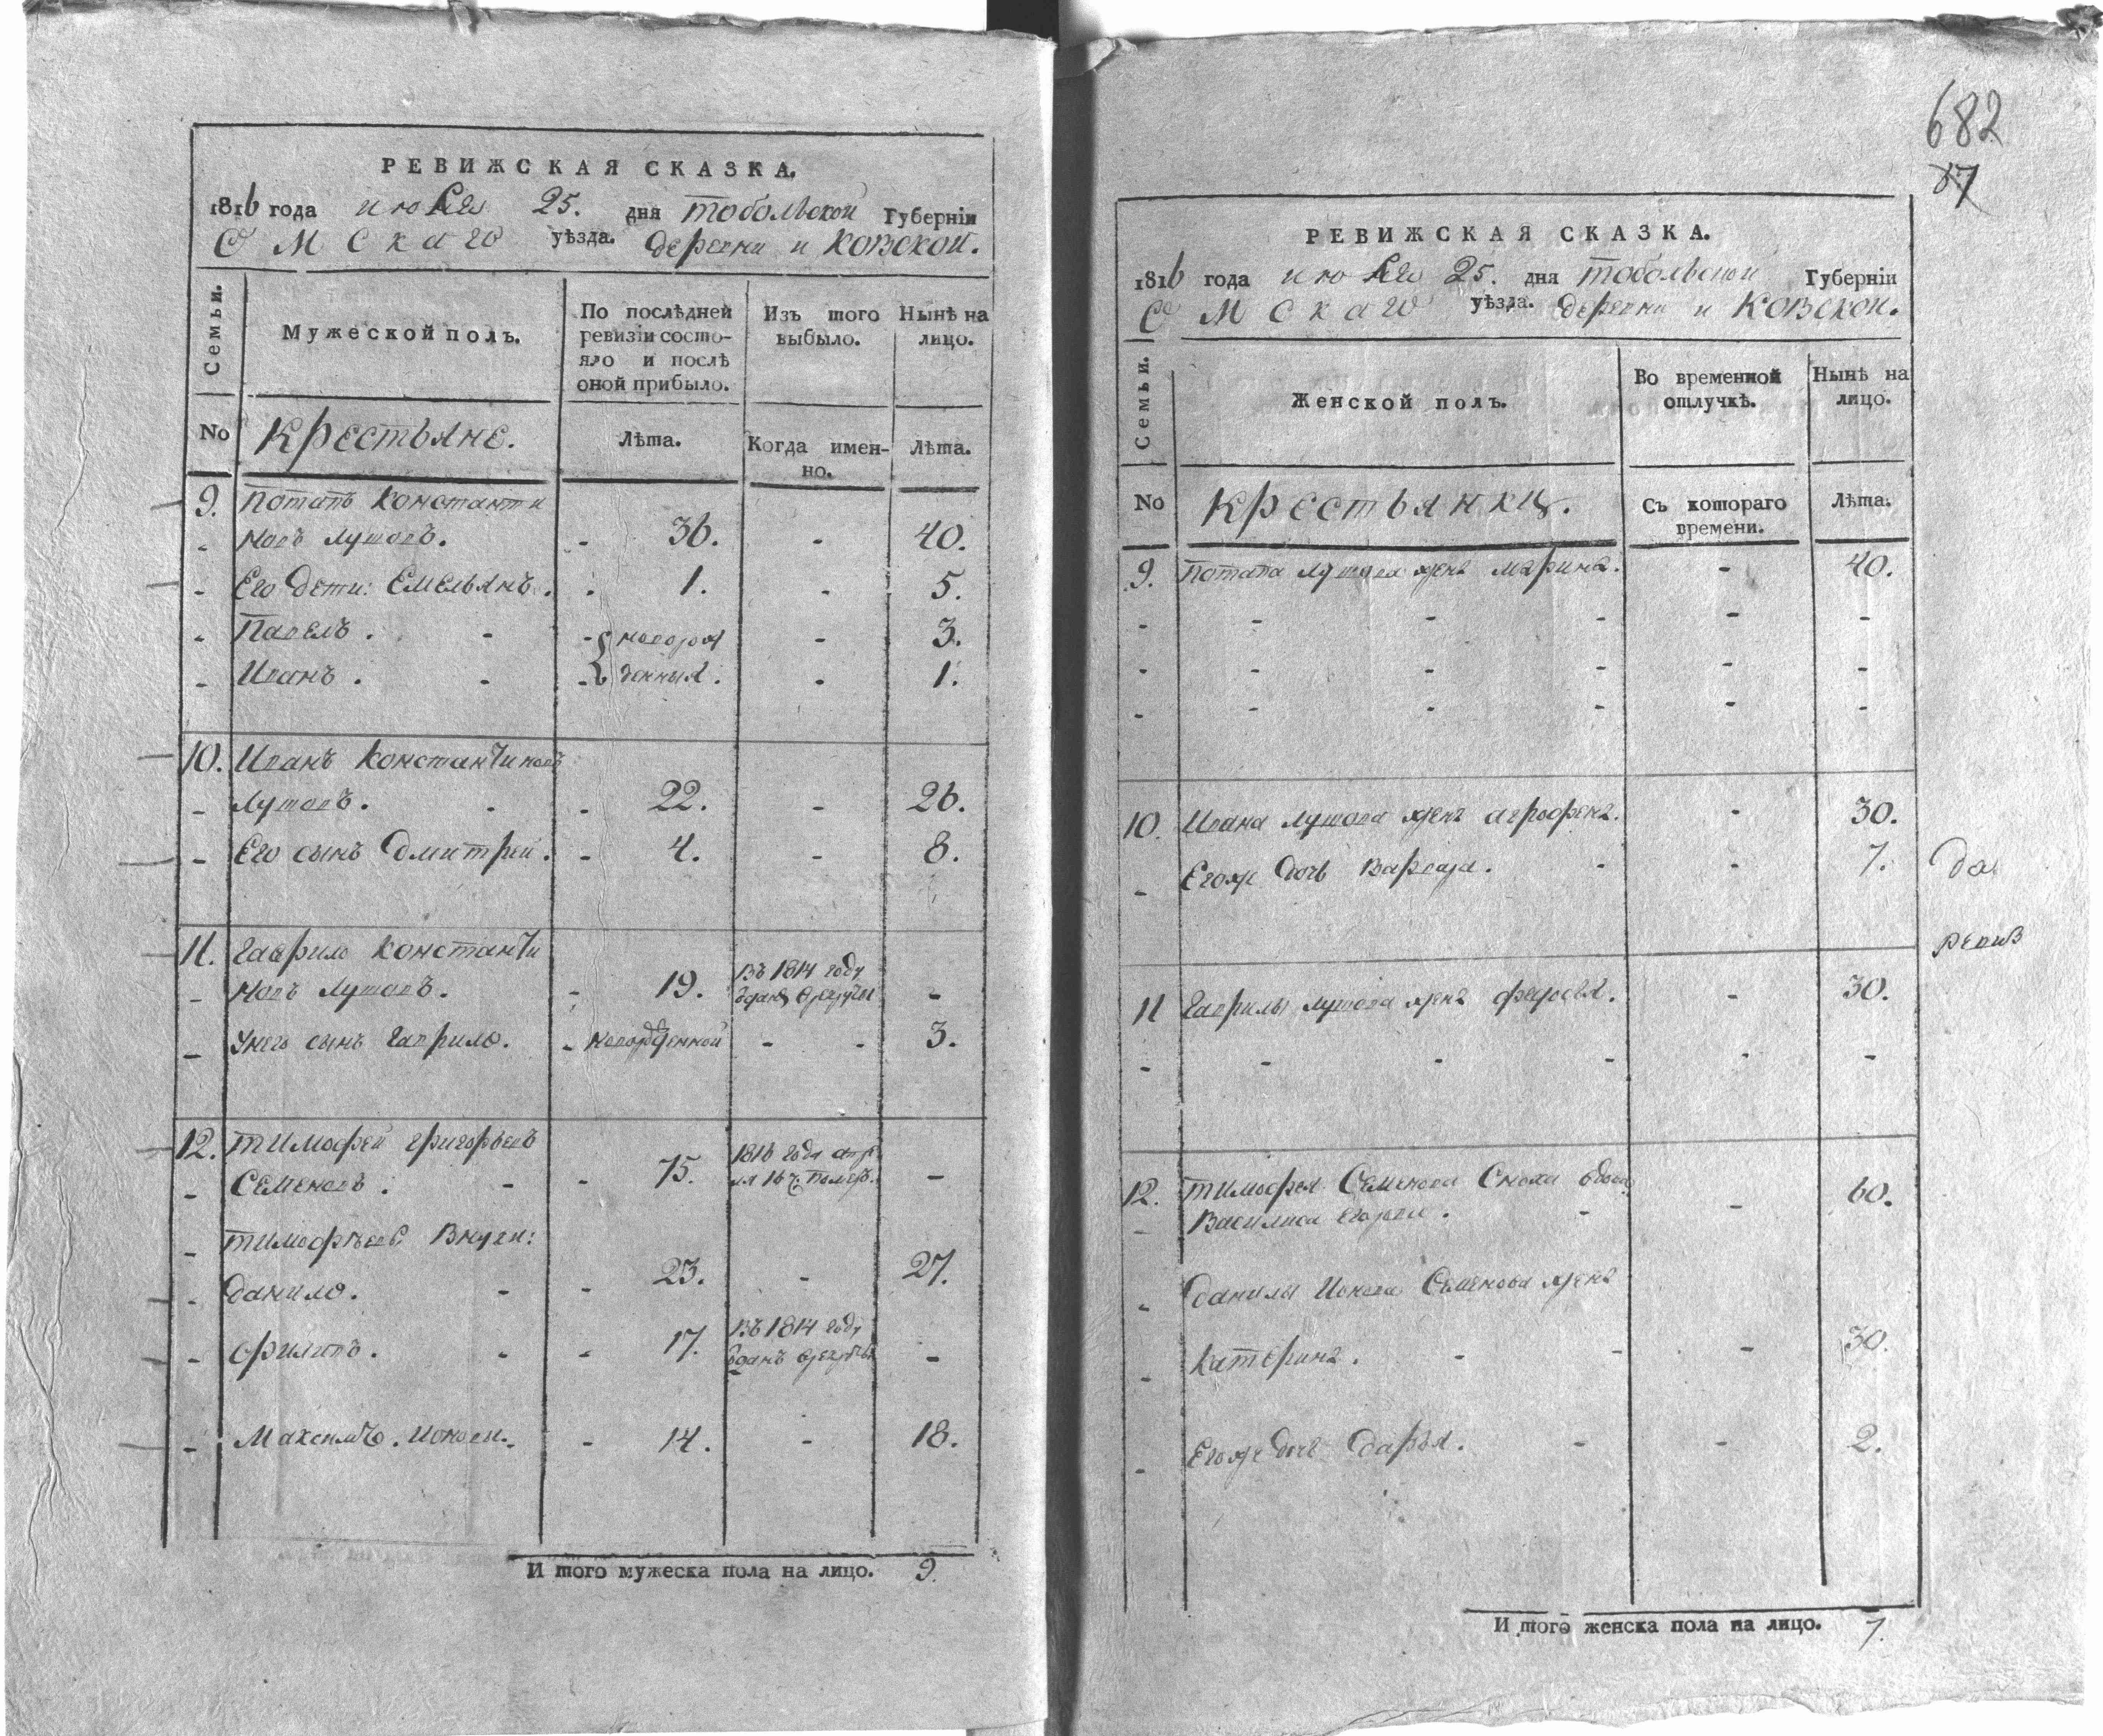 РЕВИЖСКАЯ СКАЗКА.
1816 года июля 25. дня тобольской Губерніи
Омскаго уѣзда. деревни иковской.
Семьи.
Мужеской полъ.
По послѣдней ревизіи состояло и послѣ оной прибыло.
Изъ того выбыло.
Нынѣ на лицо.
No Крестьяне. Лѣта. Когда именно. Лѣта.
9. Потапъ Константи
новъ Лушовъ. 36. 40.
Его дети: Емельянъ. 1. 5.
Павелъ. новорож 3.
Иванъ. денныя. 1.
10. Иванъ Константиновъ
Лушовъ. 22. 26.
Его сынъ Дмитрей. 4. 8.
11. Гаврило Константи
новъ Лушовъ. 19. Въ 1814 году
Унего сынъ Гаврило. новорожденной 3.
12. Тимофей Григорьевъ
Семеновъ. 75. 1816 года апре
ля 16 ч. Помер.
Тимофѣевы Внуки:
Данило. 23. 27.
Филипъ. 17. Въ 1814 году
Максимъ. Ионовы. 14. 18.
И того мужеска пола на лицо. 9.
682
РЕВИЖСКАЯ СКАЗКА.
1816 года июля 25. дня тобольской Губерніи
Омскаго уѣзда. деревни иковской.
Семьи.
Женской полъ.
Во временной отлучкѣ.
Нынѣ на лицо.
No Крестьянки. Съ котораго времени. Лѣта.
9. Потапа Лушова жена марина. 40.
10. Ивана Лушова жена агрофена. 30.
Егоже дочь Варвара. 7.
да
ревиз
11 Гаврилы Лушова жена федосья. 30.
12. Тимофея Семенова Сноха вдова 60.
Василиса Егорова.
Данилы Ионова Семенова жена
Катерина. 30.
Егоже дочь Дарья. 2.
И того женска пола на лицо. 7.